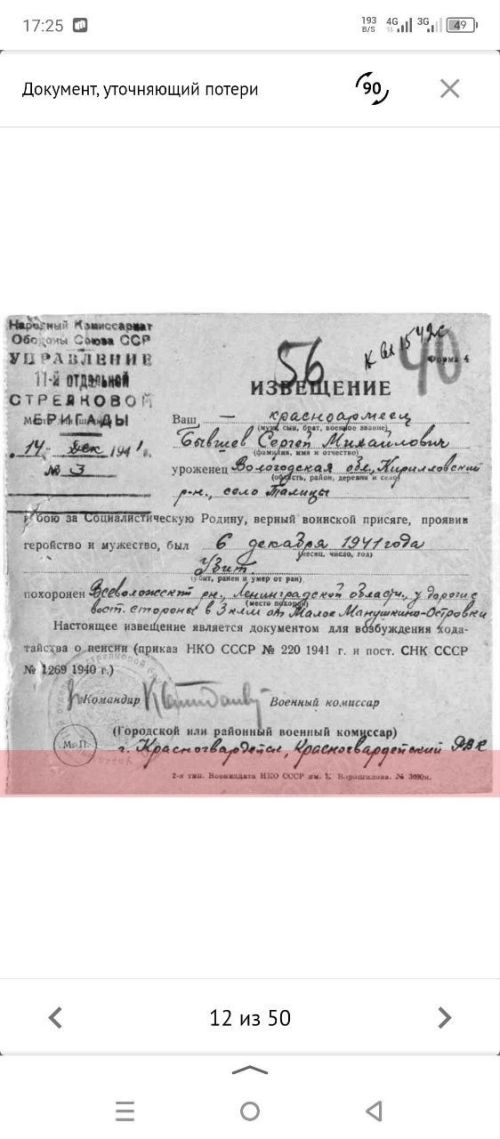 17:25
193 B/S 4G 3G 49
Документ, уточняющий потери
90
Народный Комиссариат
Обороны Союза ССР
УПРАВЛЕНИЕ
11-й отдельной
СТРЕЛКОВОЙ
БРИГАДЫ
14 Дек 1941 г.
№ 3
56
40
Форма 4
ИЗВЕЩЕНИЕ
Ваш — красноармеец
(муж, сын, брат, военное звание)
Бывшев Сергей Михайлович
(фамилия, имя и отчество)
уроженец Вологодская обл., Кирилловский
(область, район, деревня и село)
р-н., село Талицы
в бою за Социалистическую Родину, верный воинской присяге, проявив
геройство и мужество, был 6 декабря 1941 года
(месяц, число, год)
Убит.
(убит, ранен и умер от ран)
похоронен Всеволожский рн, Ленинградской области, у дороги с
(место похорон)
вост. стороны в 3 клм от Малое Манушкино-Островки
Настоящее извещение является документом для возбуждения хода-
тайства о пенсии (приказ НКО СССР № 220 1941 г. и пост. СНК СССР
№ 1269 1940 г.)
Командир Военный комиссар
(Городской или районный военный комиссар)
М. П.
г. Красногвардейск, Красногвардейский РВК
2-я тип. Воениздата НКО СССР им. К. Ворошилова. №
12 из 50